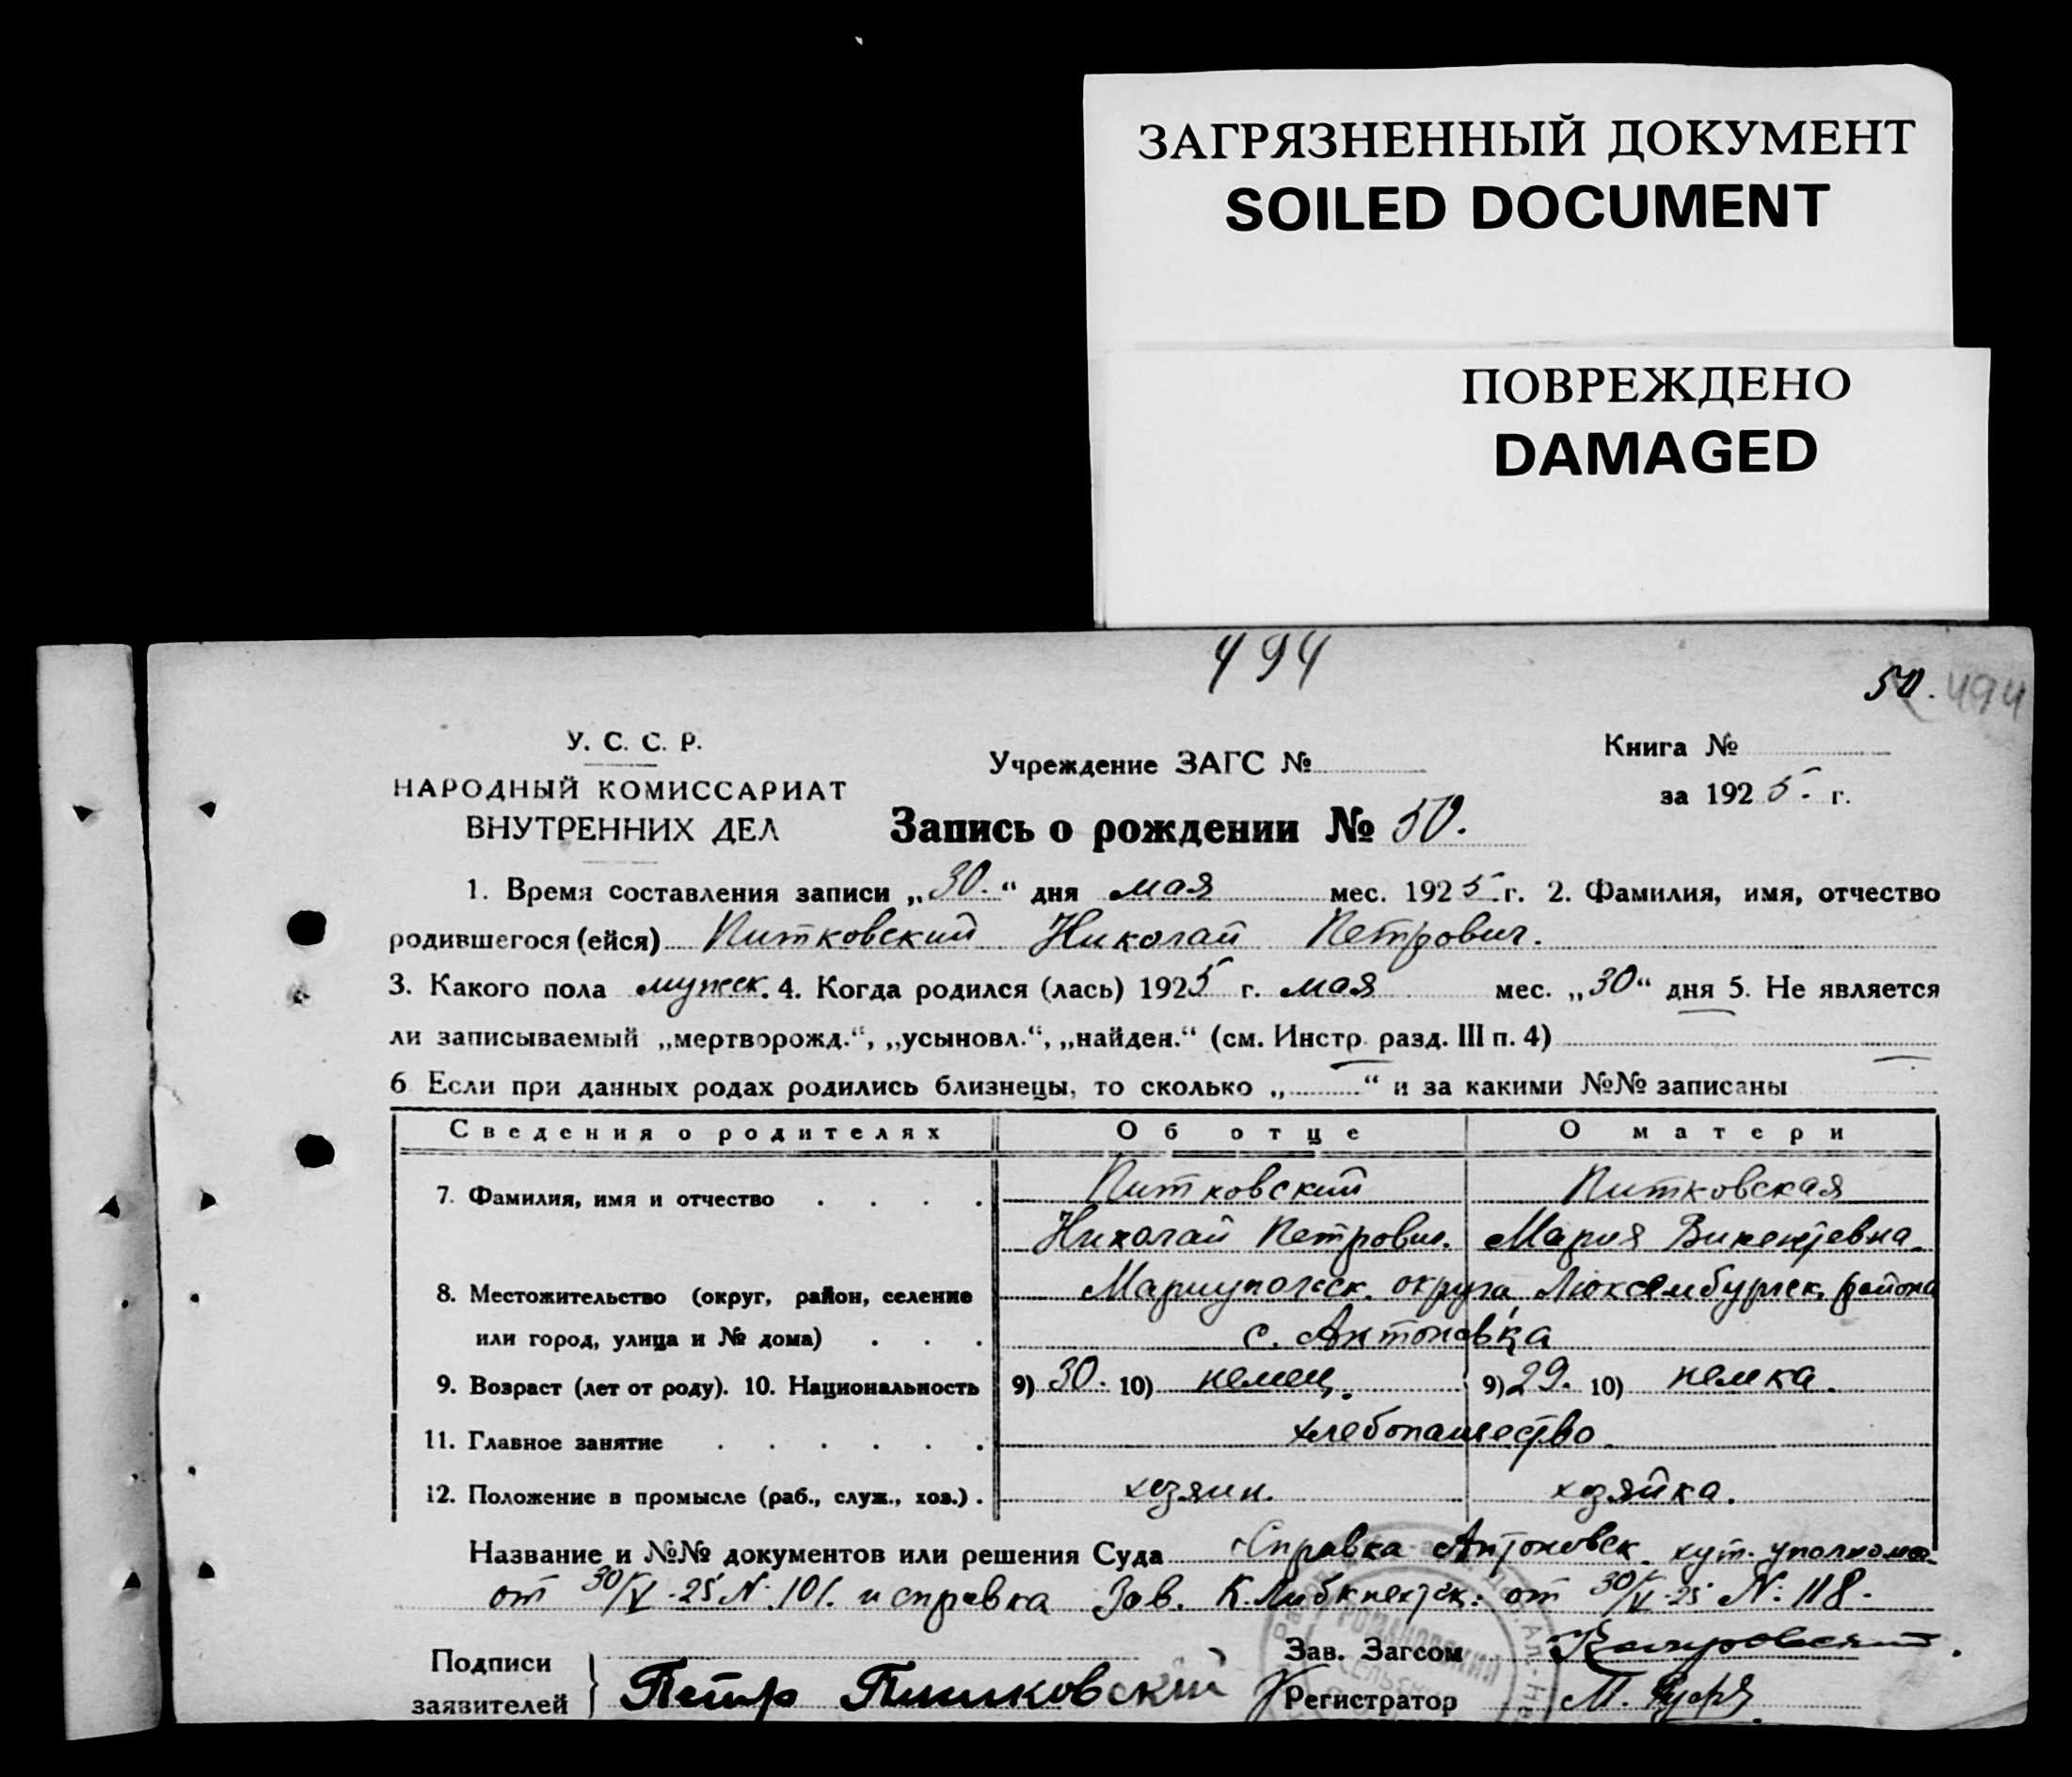 ЗАГРЯЗНЕННЫЙ ДОКУМЕНТ
SOILED DOCUMENT
ПОВРЕЖДЕНО
DAMAGED
494
50. 494
У. С. С. Р.
НАРОДНЫЙ КОМИССАРИАТ
ВНУТРЕННИХ ДЕЛ
Учреждение ЗАГС №
Книга №
за 1925. г.
Запись о рождении № 50.
1. Время составления записи „30.“ дня мая мес. 1925 г. 2. Фамилия, имя, отчество
родившегося (ейся) Питковский Николай Петрович.
3. Какого пола мужск. 4. Когда родился (лась) 1925 г. мая мес. „30“ дня 5. Не является
ли записываемый „мертворожд.“, „усыновл.“, „найден.“ (см. Инстр. разд. III п. 4)
6 Если при данных родах родились близнецы, то сколько „ “ и за какими №№ записаны
Сведения о родителях Об отце О матери
7. Фамилия, имя и отчество Питковский Питковская
Николай Петрович. Мария Викентьевна.
8. Местожительство (округ, район, селение Мариупольск. округа, Люксембургск. района
или город, улица и № дома) с. Антоновка
9. Возраст (лет от роду). 10. Национальность 9) 30. 10) немец. 9) 29. 10) немка.
11. Главное занятие хлебопашество.
12. Положение в промысле (раб., служ., хоз.). хозяин. хозяйка.
Название и №№ документов или решения Суда Справка Антоновск. хут. уполном.
от 30/V-25 N: 101. и справка Зав. К. Либкнехтск. от 30/V-25 N: 118.
Подписи
заявителей } Петр Питковский
Зав. Загсом
Регистратор М.
РОМАНОВСКИЙ